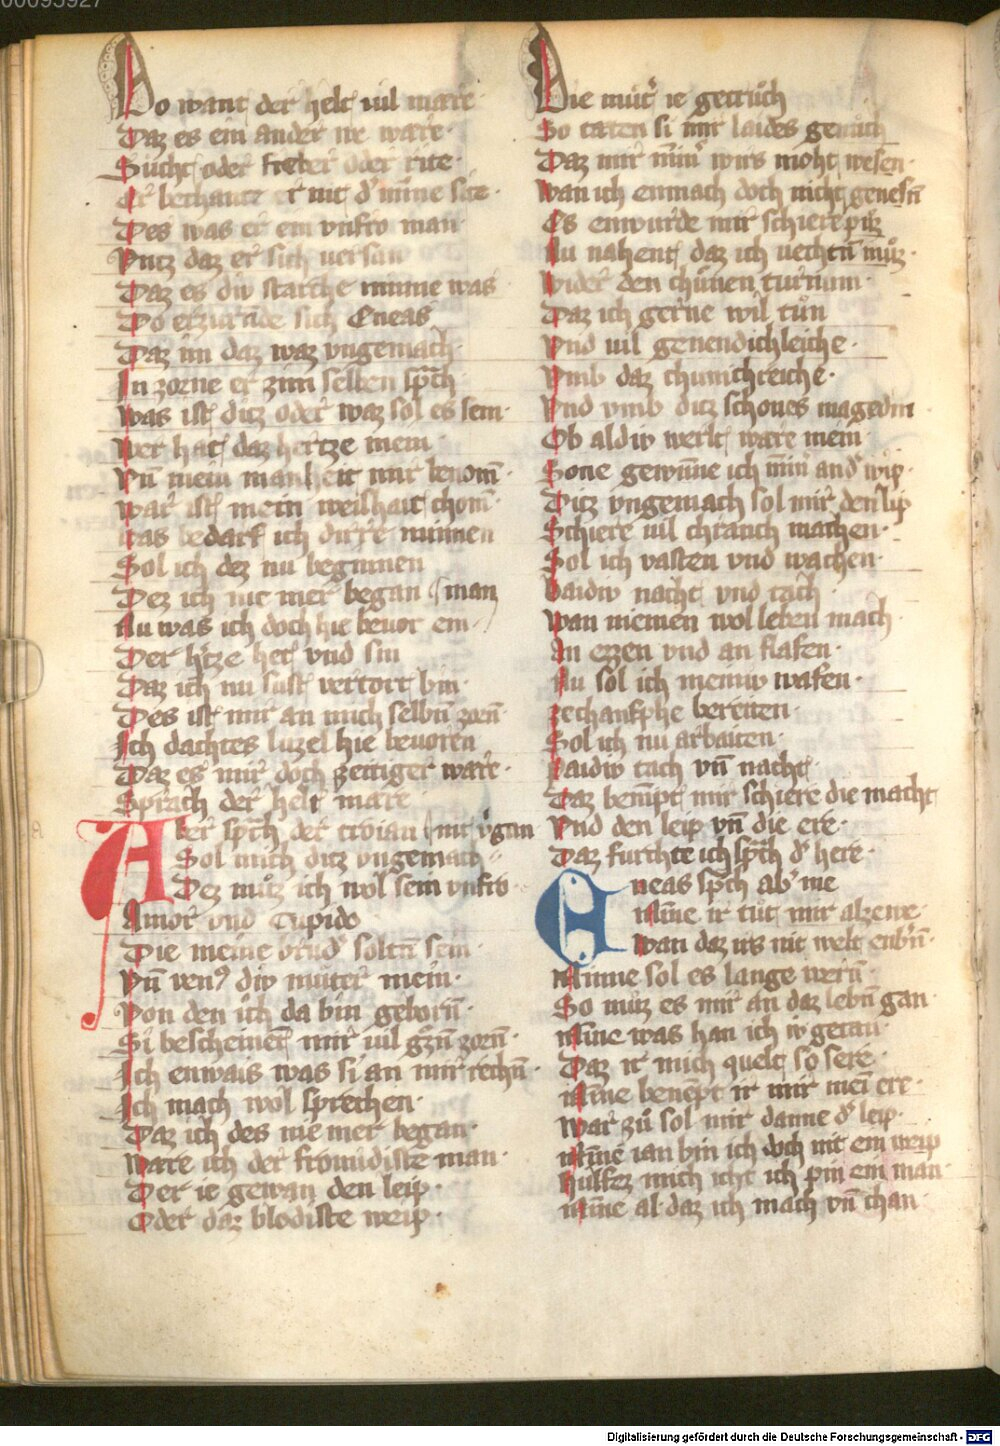 00095927
Do want der helt uil mare
Daz es ein ander ne ware·
Sucht oder fieber oder rite·
Er bechante er nit d᾽ minne site·
Des was er ein vnfro man
Vntz daz er sich uersan
Daz es div starche minne was
Do erzurnde sich Eneas
Daz im daz waz vngemach·
In zorne er zim selben sp͛ch
Was ist ditz oder waz sol es sein·
Wer hat daz hertze mein
Vn̄ mein manheit mir benom̄·
War ist mein weishait chom̄·
Was bedarf ich dirre minnen
Sol ich dez nu beginnen
Dez ich nie mer began
Nu was ich doch hie beuor ein man
Der h͛tze het vnd sin
Daz ich nu sust vertort bin·
Des ist mir an mich selbn̄ zorn̄·
Ich dachtes luzel hie beuoren
Daz es mir doch zeitiger ware·
Sprach der helt mare
Aber sp͛ch der troian
Sol mich ditz vngemach nit v͛gan
Dez muͦz ich wol sein vnfro·
Amor vnd Cupido
Die meine brud᾽ soltn̄ sein·
Vn̄ ven⁹ div muter mein·
Von den ich da bin geborn̄·
Si bescheinet mir uil gͦzn̄ zorn̄·
Ich enwais was si an mir rechn̄·
Ich mach wol sprechen·
Daz ich des nie mer began·
Ware ich der fromdiste man·
Der ie gewan den leip·
Oder daz blodiste weip·
Die mut᾽ ie getruͦch
So taten si mir laides genuch
Daz mir nim᾽ wirs moht wesen·
Wan ich enmach doch nicht genesn̄
Es enwurde mir schiere puz
Nu nahent daz ich uechtn̄ muͦz·
Wider den chuͦnen turnum·
Daz ich gerne wil tuͦn
Vnd uil genendichleiche·
Vmb daz chunichreiche·
Vnd vmb ditz schones magedin
Ob aldiv werlt ware mein
Sone gewinne ich nim᾽ and᾽ wip·
Ditz vngemach sol mir den lip
Schiere uil chranch machen·
Sol ich vasten vnd wachen·
Baidiv nacht vnd tach·
Wan niemen wol leben mach
An ezzen vnd an slafen·
Nu sol ich meiniv wafen·
ze champhe bereiten·
Sol ich nu arbaiten·
Baidiv tach vn̄ nacht·
Daz benimpt mir schiere die macht
Vnd den leip vn̄ die ere·
Daz furchte ich sp͛ch d᾽ here·
Eneas sp͛ch ab᾽ me
Minne ir tut mir alzewe·
Wan daz irs nit welt enb᾽n̄·
Minne sol es lange wern̄·
So muz es mir an daz lebn̄ gan·
Minne was han ich iv getan·
Daz ir mich quelt so sere·
Minne benempt ir mir mein ere·
War zuͦ sol mir danne d᾽ leip·
Minne ian bin ich doch nit ein weip
Hulfez mich icht ich pin ein man·
Minne al daz ich mach vn̄ chan·
Digitalisierung gefördert durch die Deutsche Forschungsgemeinschaft - DFG